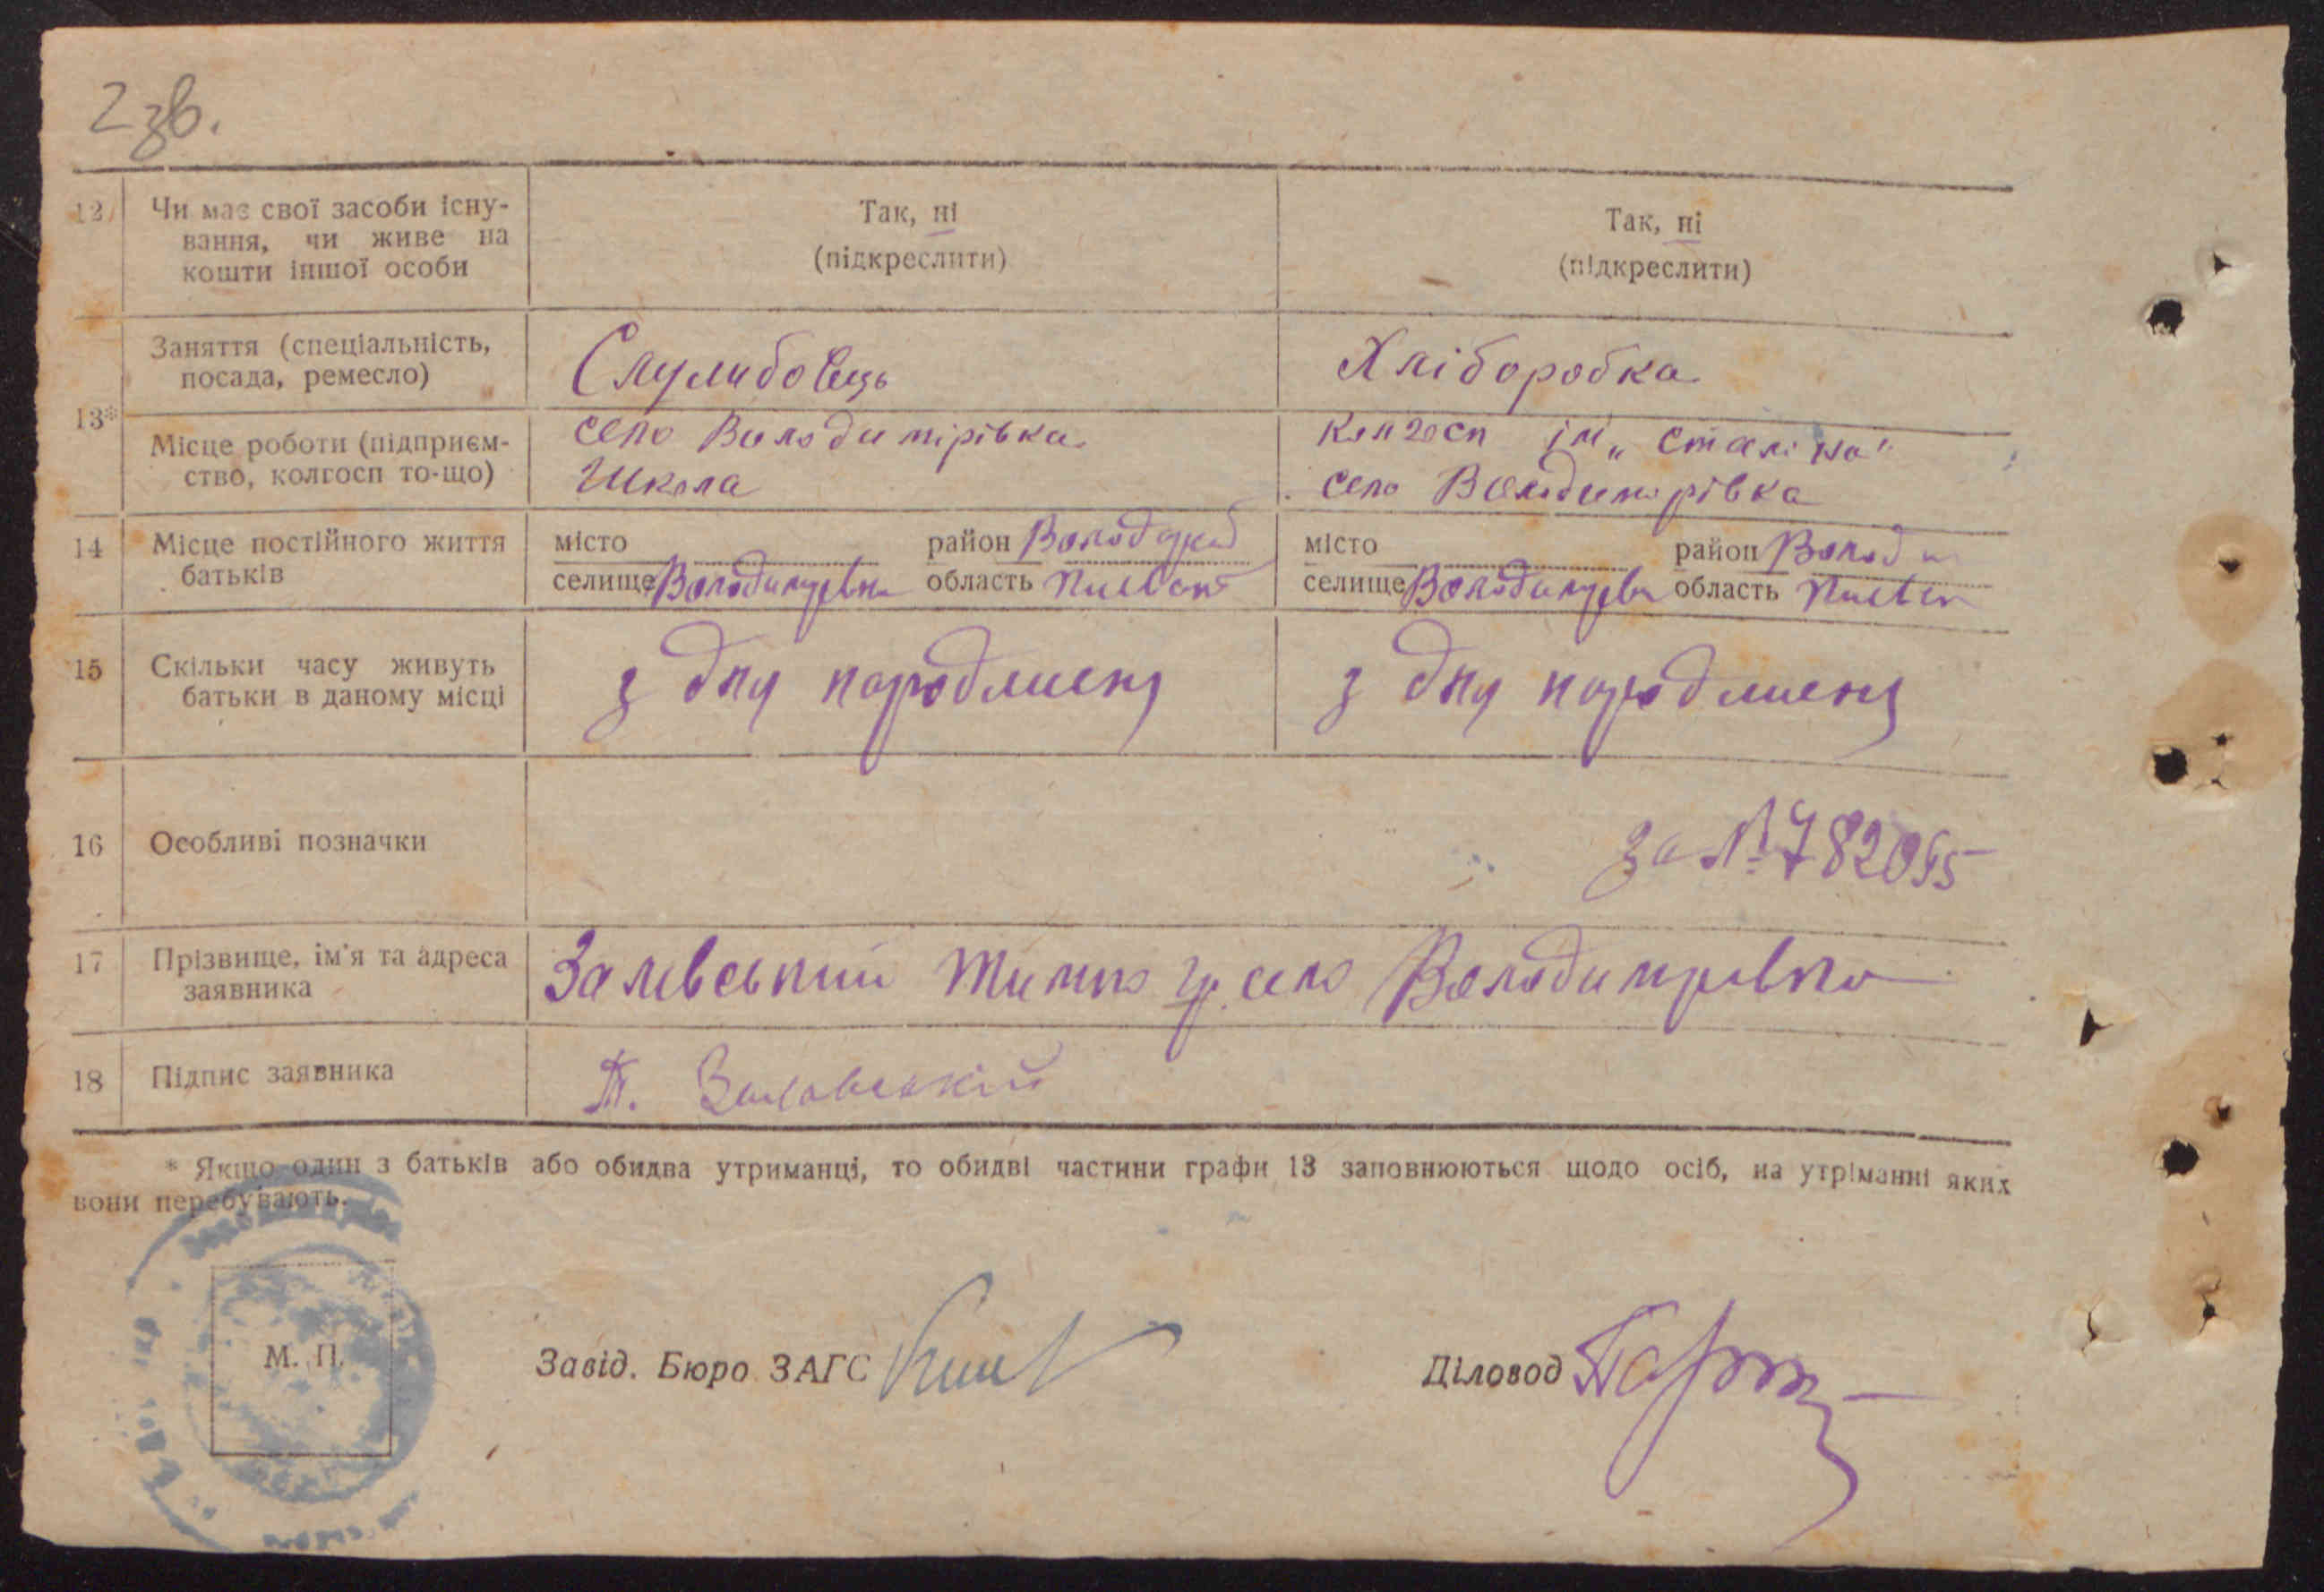 2 зв.
12 Чи має свої засоби існу-
вання, чи живе на
кошти іншої особи
Так, ні
(підкреслити)
Так, ні
(підкреслити)
13*
Заняття (спеціальність,
посада, ремесло)
Службовець
Хліборобка
Місце роботи (підприєм-
ство, колгосп то-що)
село Володимірівка
Школа
колгосп ім „Сталіна"
село Володимірівка
14 Місце постійного життя
батьків
місто район
селище Володимірівка область Київськ
місто район Волод
селище Володимирівк область Київськ
15 Скільки часу живуть
батьки в даному місці
з дну народженя
з дну народженя
16 Особливі позначки
за №
17 Прізвище, ім'я та адреса
заявника
Залевський Тимко Гр. село Володимирівка
18 Підпис заявника
Т. Залевський
* Якщо один з батьків або обидва утриманці, то обидві частини графи 13 заповнюються щодо осіб, на утріманні яких
вони перебувають.
М. П.
Завід. Бюро ЗАГС
Діловод